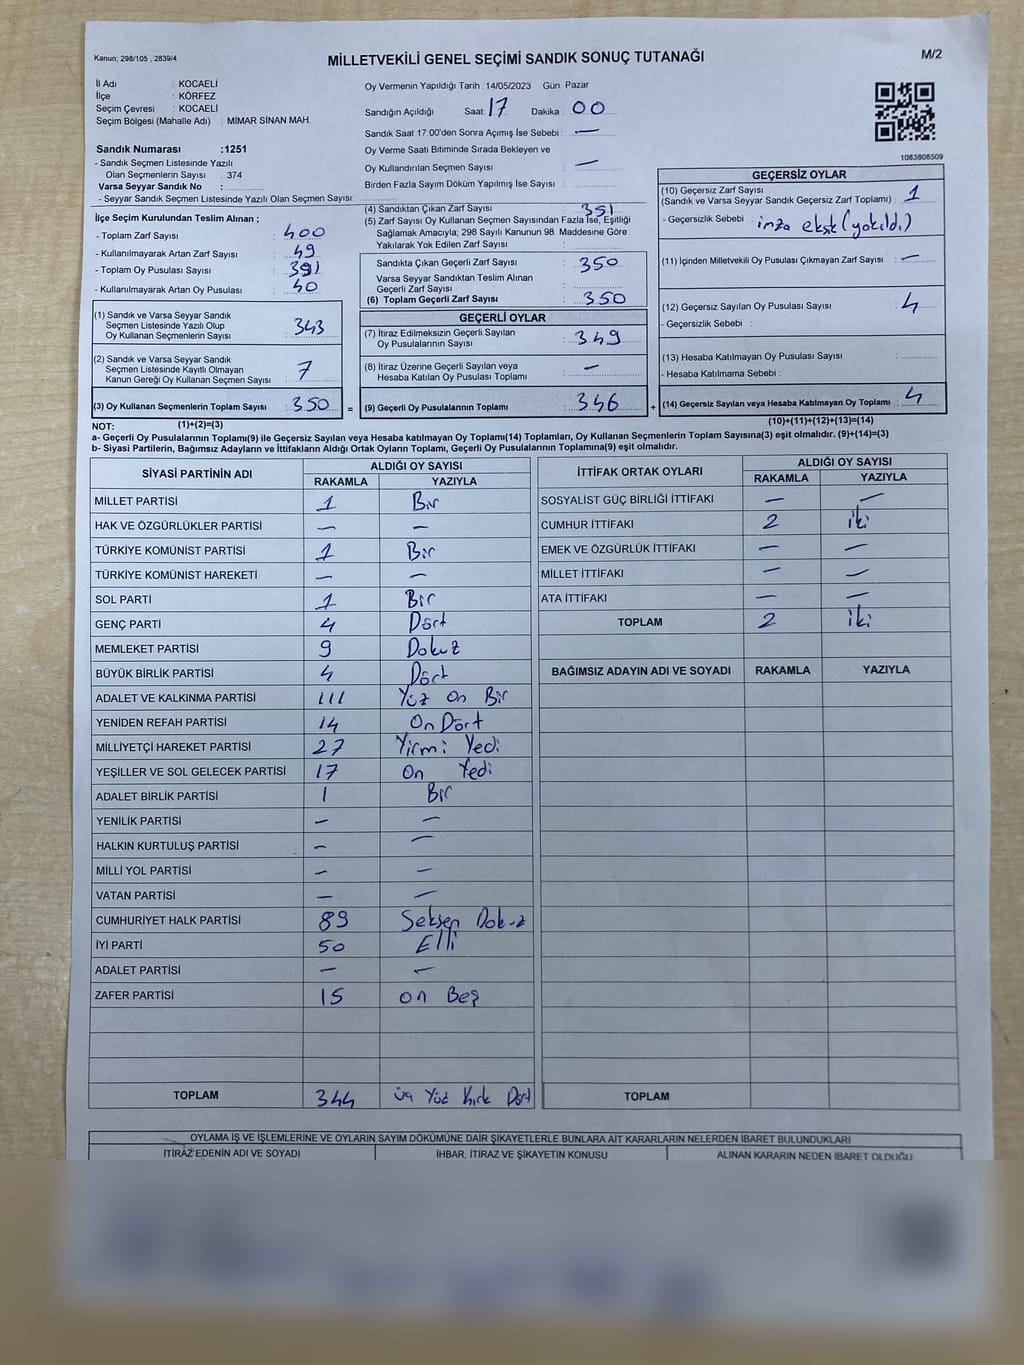 Kanun, 298/105 , 2839/4
MİLLETVEKİLİ GENEL SEÇİMİ SANDIK SONUÇ TUTANAĞI
M/2
İl Adı : KOCAELİ
İlçe : KÖRFEZ
Seçim Çevresi : KOCAELİ
Seçim Bölgesi (Mahalle Adı) : MİMAR SİNAN MAH.
Sandık Numarası :1251
- Sandık Seçmen Listesinde Yazılı
Olan Seçmenlerin Sayısı : 374
Varsa Seyyar Sandık No :
- Seyyar Sandık Seçmen Listesinde Yazılı Olan Seçmen Sayısı:
Oy Vermenin Yapıldığı Tarih :14/05/2023 Gün: Pazar
Sandığın Açıldığı Saat: 17 Dakika: 00
Sandık Saat 17:00'den Sonra Açımış İse Sebebi : —
Oy Verme Saati Bitiminde Sırada Bekleyen ve
Oy Kullandırılan Seçmen Sayısı : —
Birden Fazla Sayım Döküm Yapılmış İse Sayısı :
1083808509
İlçe Seçim Kurulundan Teslim Alınan ;
- Toplam Zarf Sayısı : 400
- Kullanılmayarak Artan Zarf Sayısı : 49
- Toplam Oy Pusulası Sayısı : 391
- Kullanılmayarak Artan Oy Pusulası : 40
(1) Sandık ve Varsa Seyyar Sandık
Seçmen Listesinde Yazılı Olup
Oy Kullanan Seçmenlerin Sayısı : 343
(2) Sandık ve Varsa Seyyar Sandık
Seçmen Listesinde Kayıtlı Olmayan
Kanun Gereği Oy Kullanan Seçmen Sayısı : 7
(3) Oy Kullanan Seçmenlerin Toplam Sayısı : 350
(4) Sandıktan Çıkan Zarf Sayısı : 351
(5) Zarf Sayısı Oy Kullanan Seçmen Sayısından Fazla İse, Eşitliği
Sağlamak Amacıyla; 298 Sayılı Kanunun 98. Maddesine Göre
Yakılarak Yok Edilen Zarf Sayısı :
Sandıkta Çıkan Geçerli Zarf Sayısı : 350
Varsa Seyyar Sandıktan Teslim Alınan
Geçerli Zarf Sayısı :
(6) Toplam Geçerli Zarf Sayısı : 350
GEÇERLİ OYLAR
(7) İtiraz Edilmeksizin Geçerli Sayılan
Oy Pusulalarının Sayısı : 349
(8) İtiraz Üzerine Geçerli Sayılan veya
Hesaba Katılan Oy Pusulası Toplamı : —
= (9) Geçerli Oy Pusulalarının Toplamı : 346
GEÇERSİZ OYLAR
(10) Geçersiz Zarf Sayısı
(Sandık ve Varsa Seyyar Sandık Geçersiz Zarf Toplamı) : 1
- Geçersizlik Sebebi : imza eksik (yakıldı)
(11) İçinden Milletvekili Oy Pusulası Çıkmayan Zarf Sayısı : —
(12) Geçersiz Sayılan Oy Pusulası Sayısı : 4
- Geçersizlik Sebebi :
(13) Hesaba Katılmayan Oy Pusulası Sayısı :
- Hesaba Katılmama Sebebi :
+ (14) Geçersiz Sayılan veya Hesaba Katılmayan Oy Toplamı : 4
NOT: (1)+(2)=(3)
(10)+(11)+(12)+(13)=(14)
a- Geçerli Oy Pusulalarının Toplamı(9) ile Geçersiz Sayılan veya Hesaba katılmayan Oy Toplamı(14) Toplamları, Oy Kullanan Seçmenlerin Toplam Sayısına(3) eşit olmalıdır. (9)+(14)=(3)
b- Siyasi Partilerin, Bağımsız Adayların ve İttifakların Aldığı Ortak Oyların Toplamı, Geçerli Oy Pusulalarının Toplamına(9) eşit olmalıdır.
SİYASİ PARTİNİN ADI
ALDIĞI OY SAYISI
RAKAMLA YAZIYLA
MİLLET PARTİSİ 1 Bir
HAK VE ÖZGÜRLÜKLER PARTİSİ — —
TÜRKİYE KOMÜNİST PARTİSİ 1 Bir
TÜRKİYE KOMÜNİST HAREKETİ — —
SOL PARTİ 1 Bir
GENÇ PARTİ 4 Dört
MEMLEKET PARTİSİ 9 Dokuz
BÜYÜK BİRLİK PARTİSİ 4 Dört
ADALET VE KALKINMA PARTİSİ 111 Yüz On Bir
YENİDEN REFAH PARTİSİ 14 On Dört
MİLLİYETÇİ HAREKET PARTİSİ 27 Yirmi Yedi
YEŞİLLER VE SOL GELECEK PARTİSİ 17 On Yedi
ADALET BİRLİK PARTİSİ 1 Bir
YENİLİK PARTİSİ — —
HALKIN KURTULUŞ PARTİSİ — —
MİLLİ YOL PARTİSİ — —
VATAN PARTİSİ — —
CUMHURİYET HALK PARTİSİ 89 Seksen Dokuz
İYİ PARTİ 50 Elli
ADALET PARTİSİ — —
ZAFER PARTİSİ 15 On Beş
TOPLAM 344 Üç Yüz Kırk Dört
İTTİFAK ORTAK OYLARI
ALDIĞI OY SAYISI
RAKAMLA YAZIYLA
SOSYALİST GÜÇ BİRLİĞİ İTTİFAKI — —
CUMHUR İTTİFAKI 2 iki
EMEK VE ÖZGÜRLÜK İTTİFAKI — —
MİLLET İTTİFAKI — —
ATA İTTİFAKI — —
TOPLAM 2 iki
BAĞIMSIZ ADAYIN ADI VE SOYADI RAKAMLA YAZIYLA
TOPLAM
OYLAMA İŞ VE İŞLEMLERİNE VE OYLARIN SAYIM DÖKÜMÜNE DAİR ŞİKAYETLERLE BUNLARA AİT KARARLARIN NELERDEN İBARET BULUNDUKLARI
İTİRAZ EDENİN ADI VE SOYADI İHBAR, İTİRAZ VE ŞİKAYETİN KONUSU ALINAN KARARIN NEDEN İBARET OLDUĞU